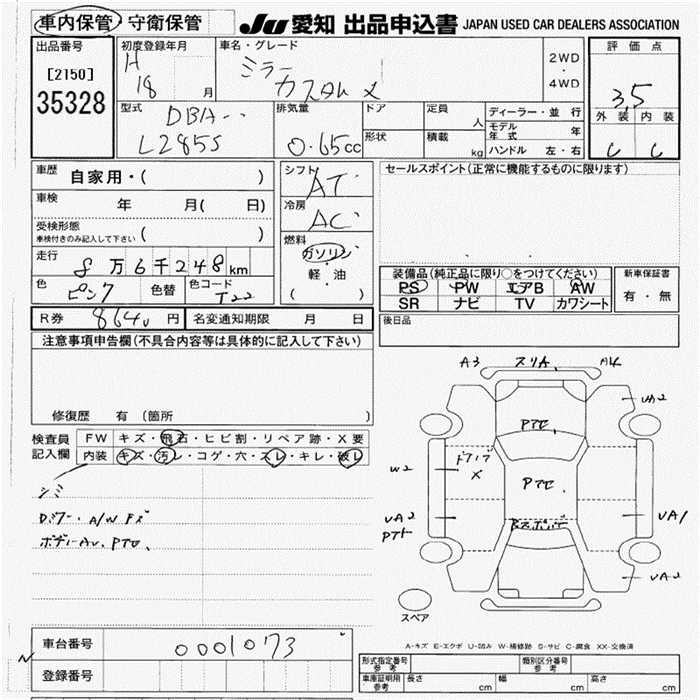 車内保管・守衛保管
JU 愛知 出品申込書 JAPAN USED CAR DEALERS ASSOCIATION
出品番号
[2150]
35328
初度登録年月
H
18 月
車名・グレード
ミラ
カスタム
2WD
・
4WD
評価点
3.5
外装 内装
C C
型式
DBA-
L285S
排気量
0.65cc
ドア
形状
定員
人
積載
kg
ディーラー・並行
モデル年式 年
ハンドル 左・右
車歴 自家用・( )
車検 年 月( 日)
受検形態
車検付きのみ記入して下さい ( )
走行 8万6千248km
色 ピンク 色替 色コード T22
シフト
AT
冷房
AC
燃料
ガソリン
・
軽・油
( )
セールスポイント(正常に機能するものに限ります)
装備品(純正品に限り○をつけてください)
PS PW エアB AW
SR ナビ TV カワシート
新車保証書
有・無
R券 8640 円 名変通知期限 月 日
後日品
注意事項申告欄(不具合内容等は具体的に記入して下さい)
修復歴 有 (箇所 )
検査員
記入欄
FW キズ・飛石・ヒビ割・リペア跡・X要
内装 キズ・汚レ・コゲ・穴・スレ・キレ・破レ
シミ
Dミラー・A/W キズ
ボディーAU、PTセ、
A3 スリA、 A4
UA2
PTセ、
ドアノブ
X
W2
PTセ、
UA2
PTト
UA1
UA2
スペア
A-キズ E-エクボ U-凹み W-補修跡 S-サビ C-腐食 XX-交換済
車台番号 0001073
登録番号
N
型式指定番号
参考
類別区分番号
参考
車庫証明用
参考
長さ cm 幅 cm 高さ cm